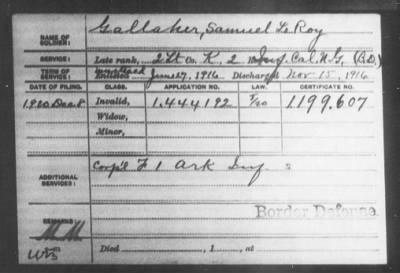 NAME OF SOLDIER: Gallaher, Samuel LeRoy
SERVICE: Late rank, 2 Lt Co. K, 2 Inf. Cal. N.G. (B.D.)
TERM OF SERVICE: Enlisted June 27, 1916. Discharged Nov. 15, 1916
DATE OF FILING. CLASS. APPLICATION NO. LAW. CERTIFICATE NO.
1920 Dec 8 Invalid, 1.444192 1199.607
Widow,
Minor,
ADDITIONAL SERVICES: Corp'l F 1 Ark Inf.
Border Defense.
REMARKS:
Died , 1 , at